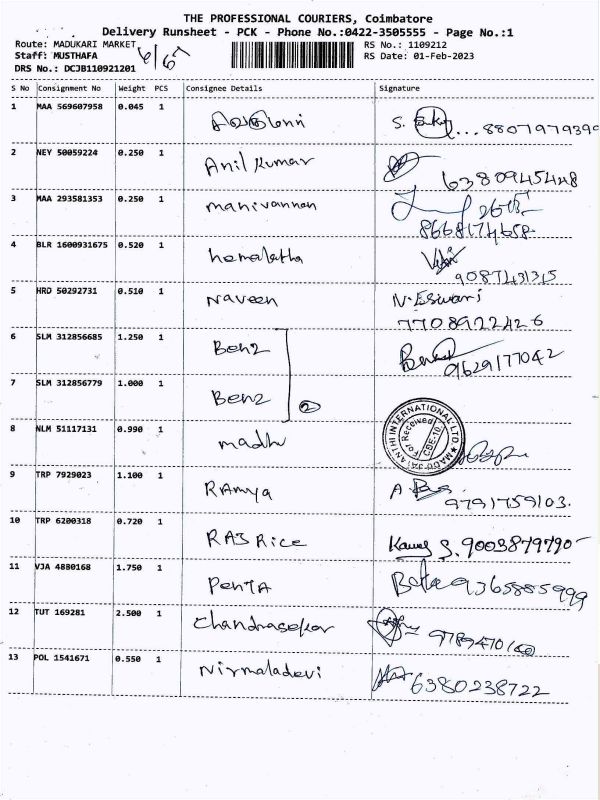 THE PROFESSIONAL COURIERS, Coimbatore
Delivery Runsheet - PCK - Phone No.:0422-3505555 - Page No.:1
Route: MADUKARI MARKET
RS No.: 1109212
Staff: MUSTHAFA
RS Date: 01-Feb-2023
DRS No.: DCJB110921201
S No Consignment No Weight PCS Consignee Details Signature
1 MAA 569607958 0.045 1 S. 8807979399
2 NEY 50059224 0.250 1 Anil Kumar 6380945448
3 MAA 293581353 0.250 1 manivannan
8668174658
4 BLR 1600931675 0.520 1 hemalatha
9087431315
5 HRD 50292731 0.510 1 Naveen N. Eswari
7708922426
6 SLM 312856685 1.250 1 Benz 9629177042
7 SLM 312856779 1.000 1 Benz
2
8 NLM 51117131 0.990 1 madhu
9 TRP 7929023 1.100 1 RAmya A
9791759103.
10 TRP 6200318 0.720 1 RAJ Rice 9003879790
11 VJA 4880168 1.750 1 PenTA 9365885999
12 TUT 169281 2.500 1 Chandrasekar
13 POL 1541671 0.550 1 Nirmaladevi 6380238722